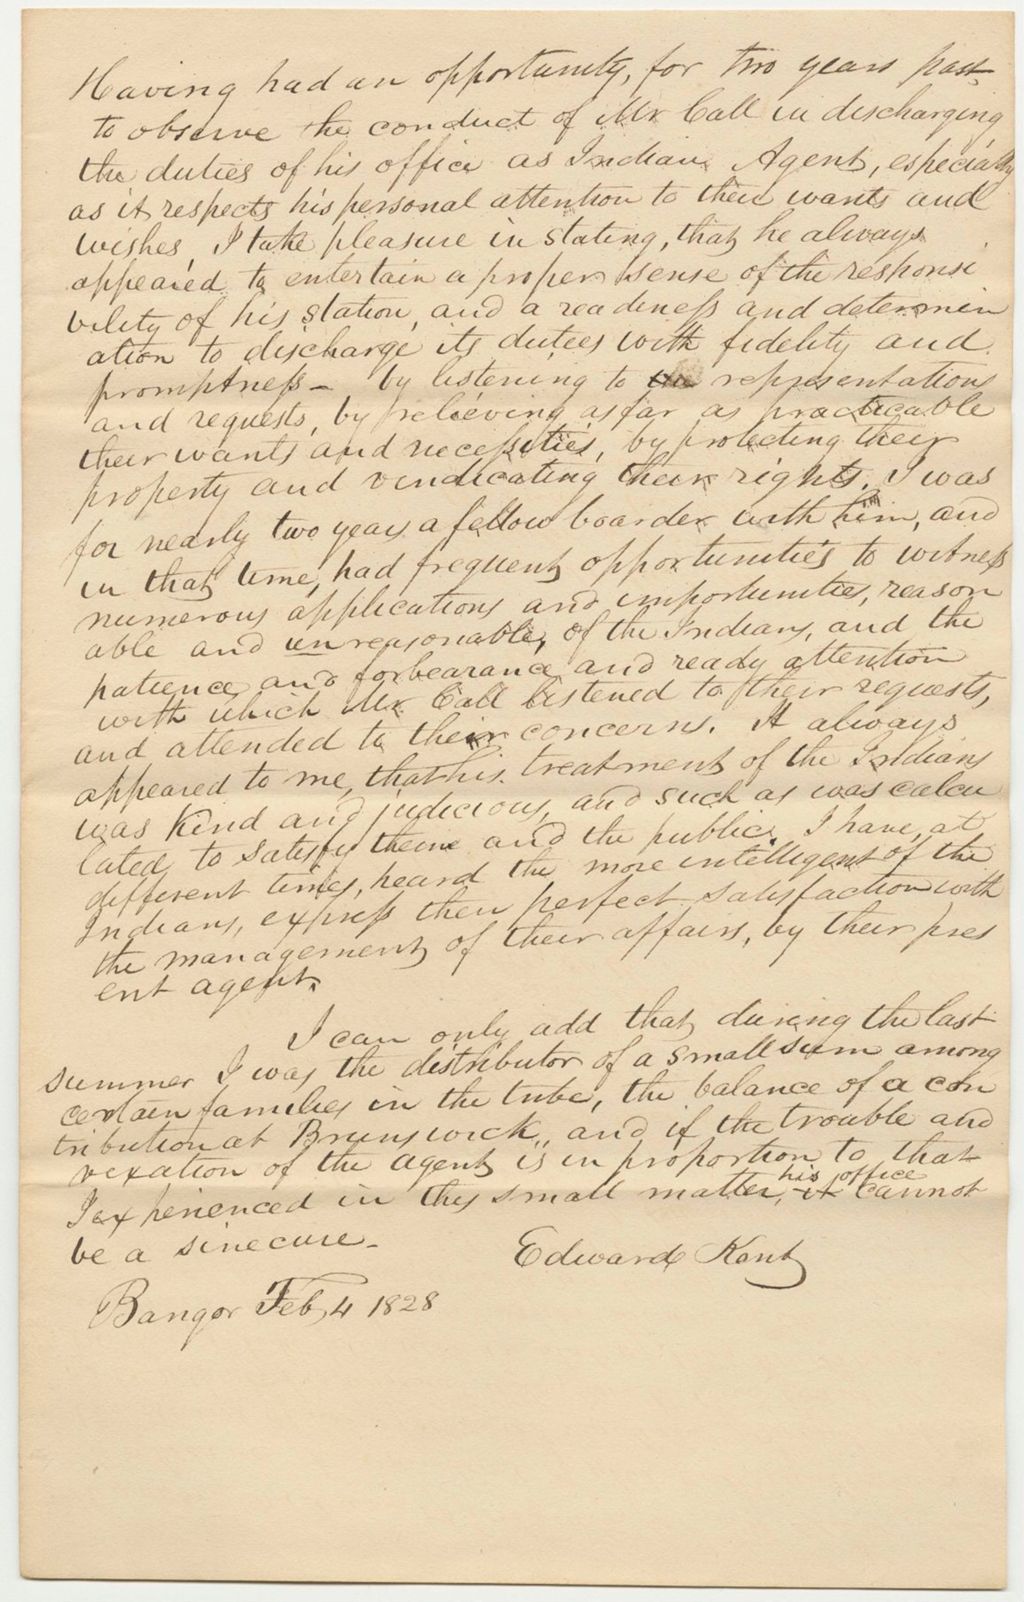 Having had an opportunity, for two years past
to observe the conduct of Mr Call in discharging
the duties of his office as Indian Agent, especially
as it respects his personal attention to their wants and
wishes, I take pleasure in stating, that he always
appeared to entertain a proper sense of the responsi
bility of his station, and a readiness and determin
ation to discharge its duties with fidelity and
promptness - by listening to the representations
and requests, by relieving as far as practicable
their wants and necessities, by protecting their
property and vindicating their rights. I was
for nearly two years a fellow boarder with him, and
in that time, had frequent opportunities to witness
numerous applications and importunities, reason
able and unreasonable, of the Indians, and the
patience and forbearance and ready attention
with which Mr Call listened to their requests,
and attended to their concerns. It always
appeared to me, that his treatment of the Indians
was kind and judicious, and such as was calcu
lated to satisfy them and the public. I have, at
different times, heard the more intelligent of the
Indians, express their perfect satisfaction with
the management of their affairs, by their pres
ent agent.
I can only add that during the last
summer I was the distributor of a small sum among
certain families in the tribe, the balance of a con
tribution at Brunswick, and if the trouble and
vexation of the agent is in proportion to that
I experienced in this small matter, his office it cannot
be a sinecure -
Edward Kent
Bangor Feb 4 1828